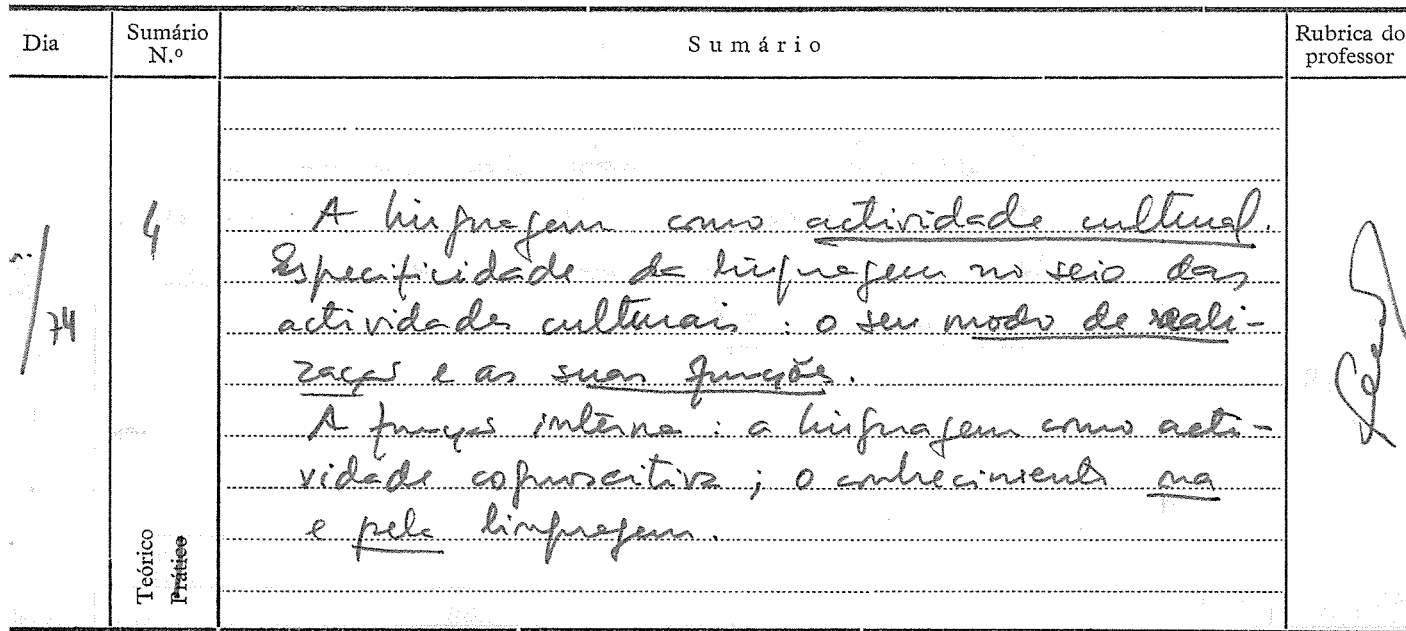 Dia
Sumário N.º
Sumário
Rubrica do professor
/74
4
A linguagem como actividade cultural.
Especificidade da linguagem no seio das
actividades culturais : o seu modo de reali-
zação e as suas funções.
A função interna : a linguagem como acti-
vidade cognoscitiva ; o conhecimento na
e pela linguagem.
Teórico
Prático